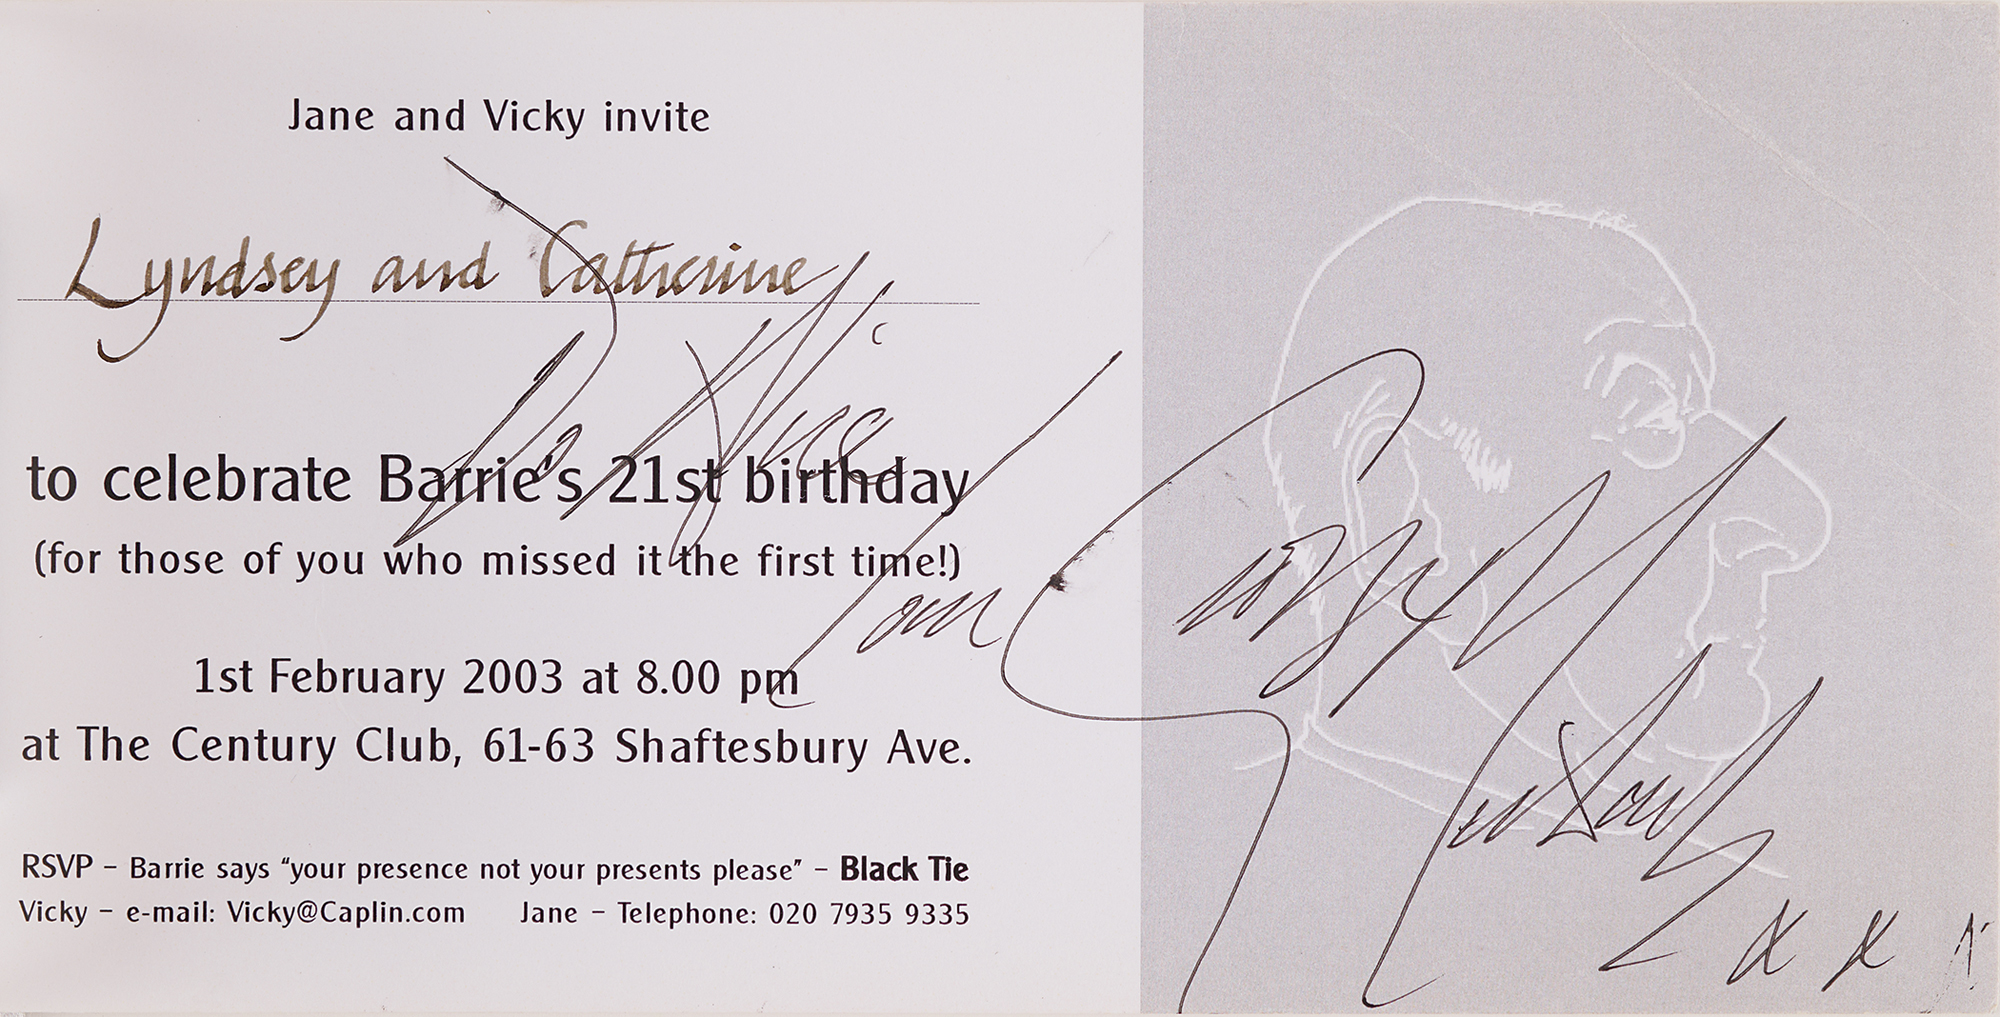 Jane and Vicky invite
Lyndsey and Catherine
to celebrate Barrie's 21st birthday
(for those of you who missed it the first time!)
1st February 2003 at 8.00 pm
at The Century Club, 61-63 Shaftesbury Ave.
RSVP – Barrie says “your presence not your presents please” – Black Tie
Vicky – e-mail: Vicky@Caplin.com Jane – Telephone: 020 7935 9335
Tom
x x